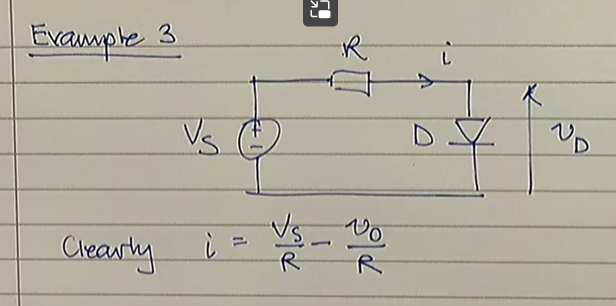 Example 3
R i
Vs D v_D
Clearly i = Vs/R - v_D/R